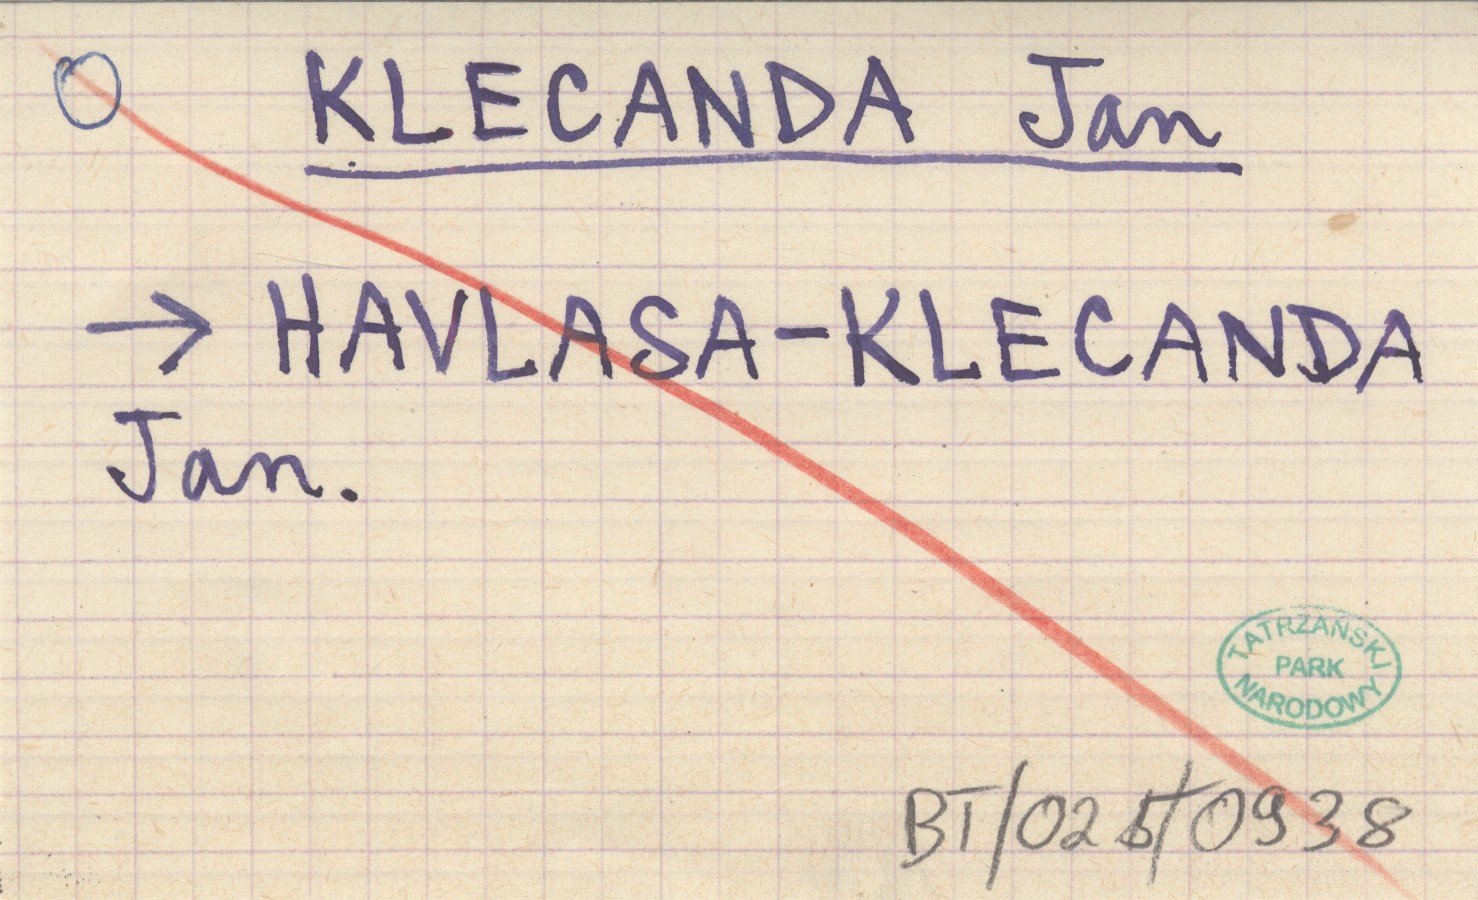 KLECANDA Jan
→ HAVLASA-KLECANDA
Jan.
TATRZAŃSKI
PARK
NARODOWY
BT/025/0938